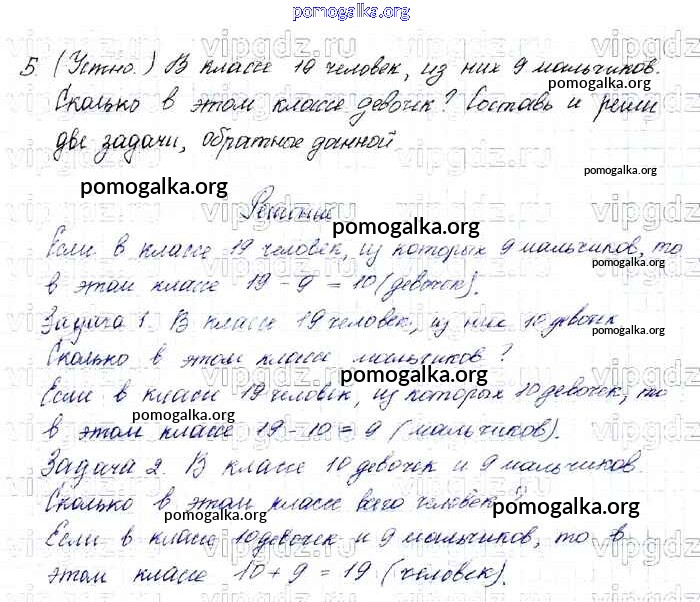 pomogalka.org
5. (Устно.) В классе 19 человек, из них 9 мальчиков.
Сколько в этом классе девочек? Составь и реши
две задачи, обратные данной
pomogalka.org
pomogalka.org
Решение
pomogalka.org
Если в классе 19 человек, из которых 9 мальчиков, то
pomogalka.org
в этом классе 19 - 9 = 10 (девочек).
Задача 1. В классе 19 человек, из них 10 девочек
pomogalka.org
Сколько в этом классе мальчиков?
pomogalka.org
Если в классе 19 человек, из которых 10 девочек, то
pomogalka.org
в этом классе 19 - 10 = 9 (мальчиков).
pomogalka.org
Задача 2. В классе 10 девочек и 9 мальчиков.
Сколько в этом классе всего человек?
pomogalka.org
Если в классе 10 девочек и 9 мальчиков, то в
pomogalka.org
этом классе 10 + 9 = 19 (человек).
vipgdz.ru